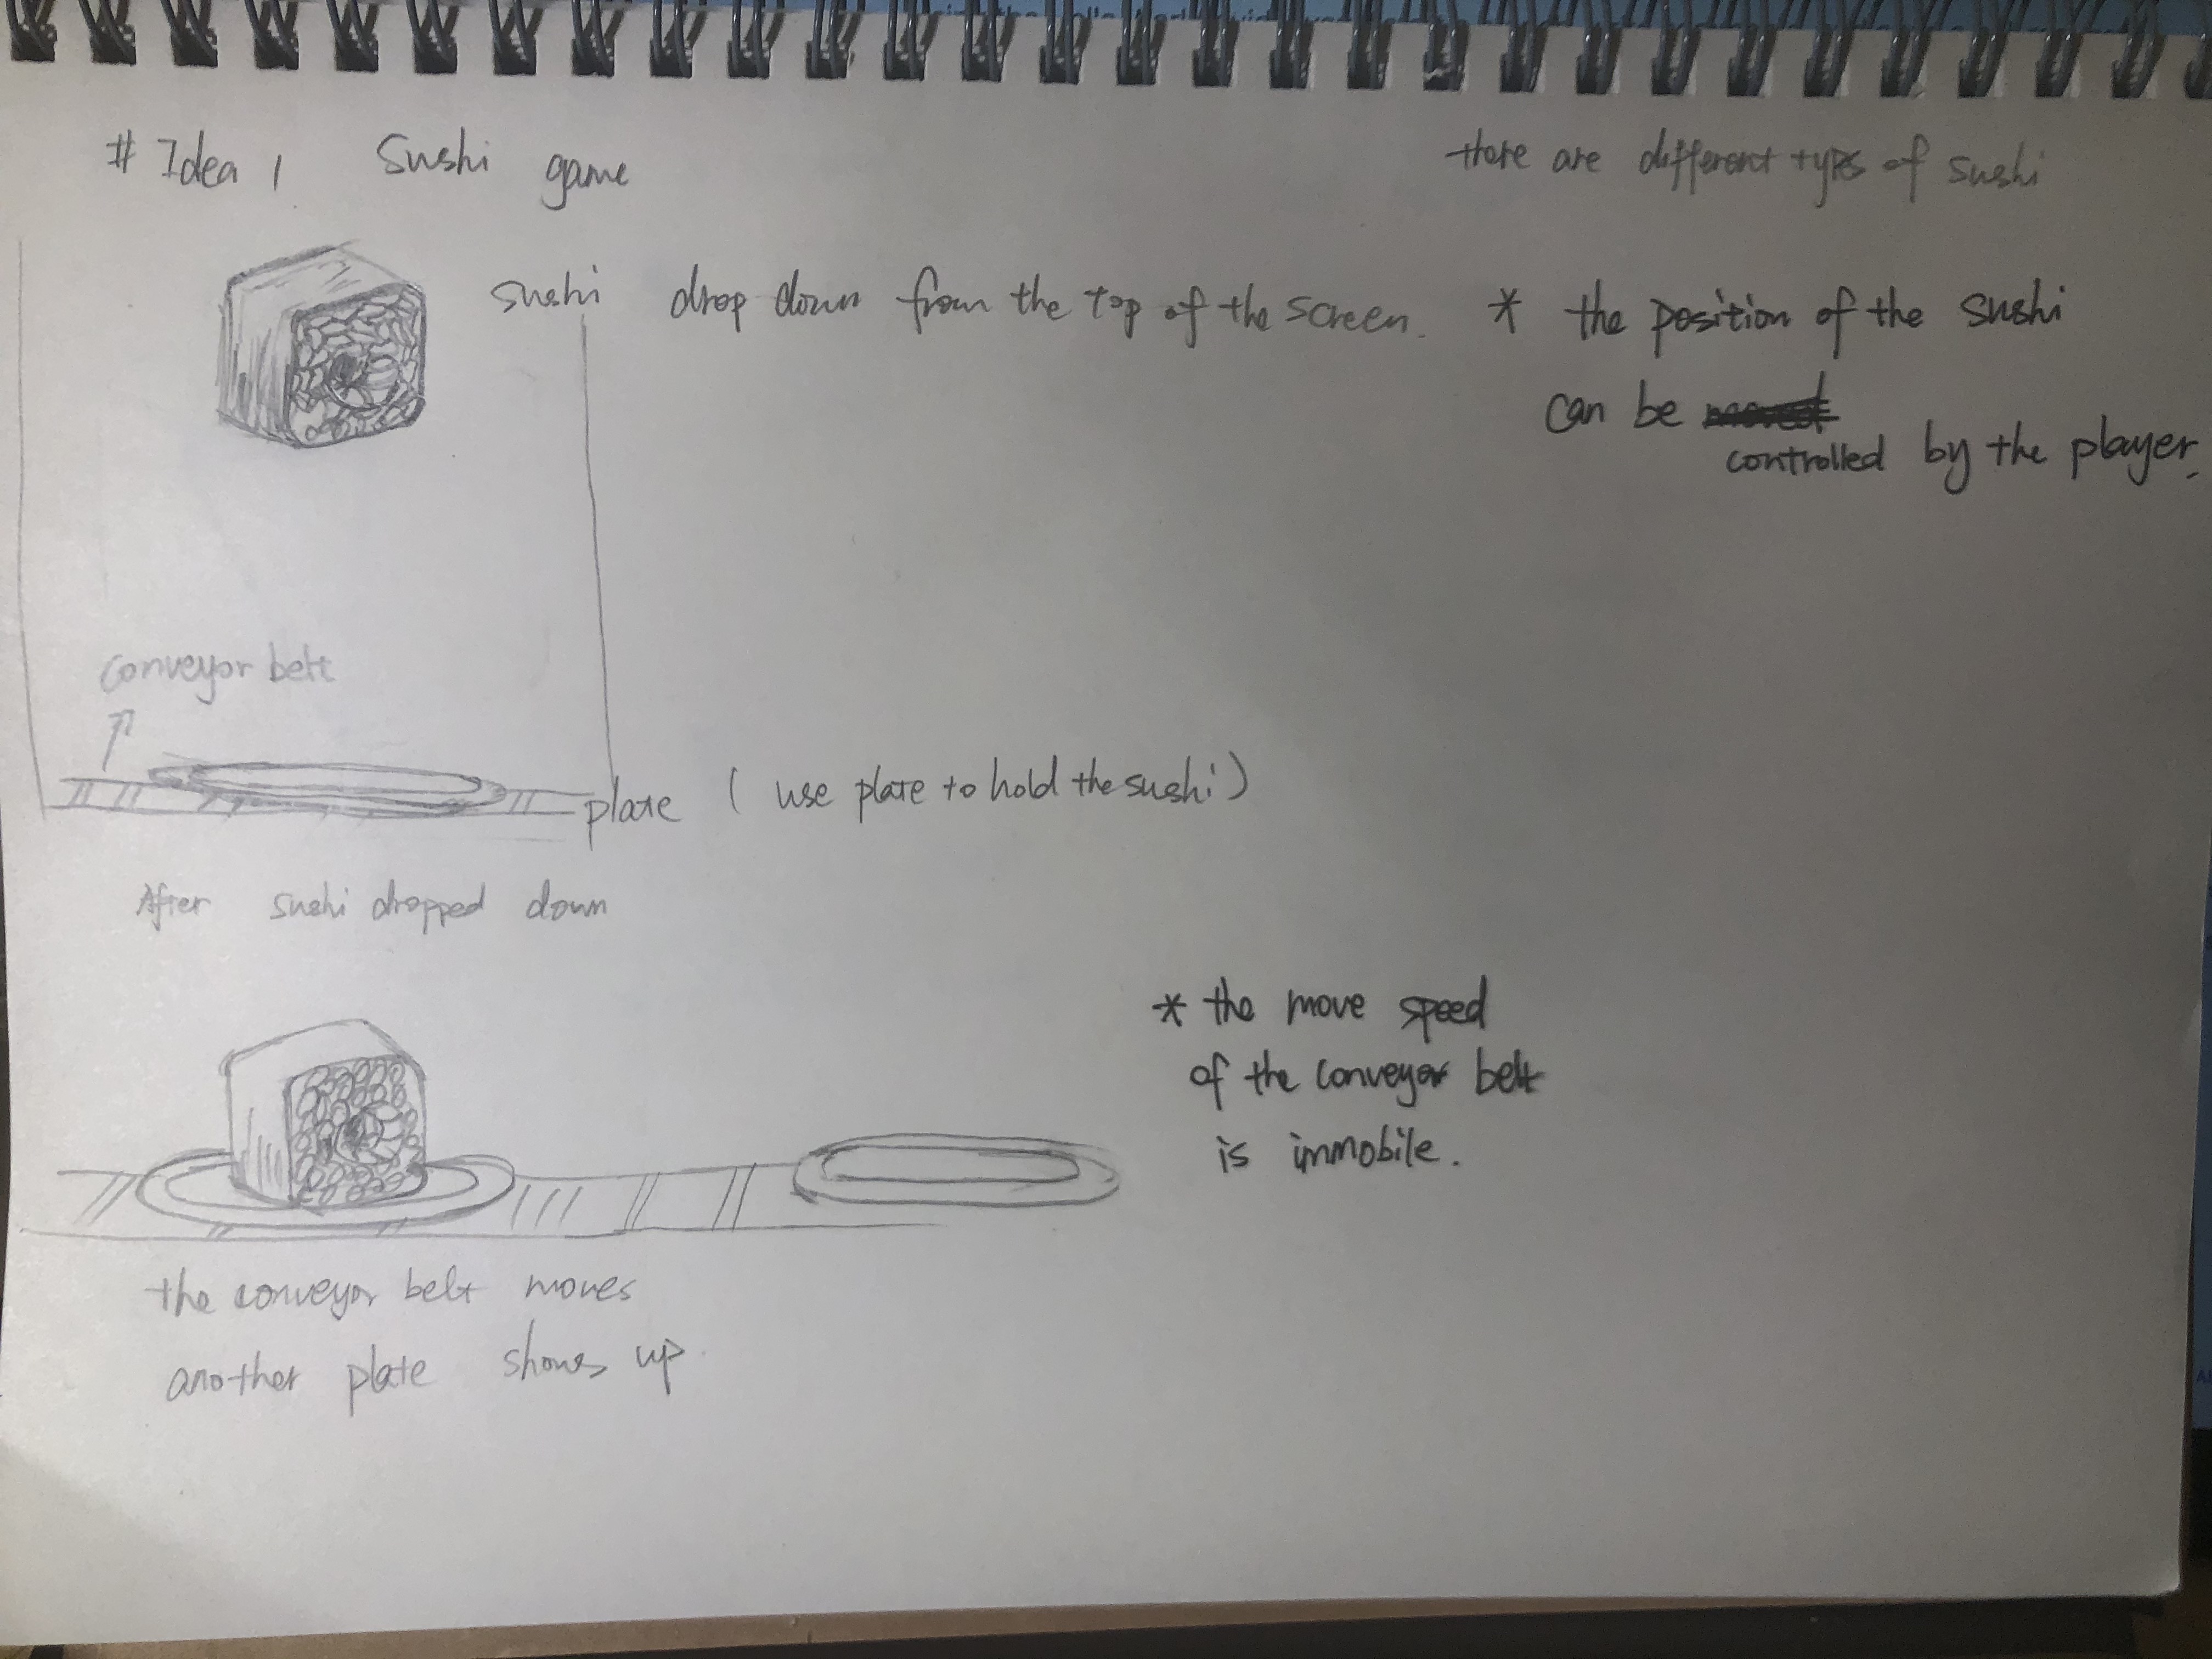 # Idea 1 Sushi game
there are different types of sushi
sushi drop down from the top of the screen.
* the position of the sushi
can be controlled by the player.
conveyor belt
plate ( use plate to hold the sushi )
After sushi dropped down
* the move speed
of the conveyor belt
is immobile.
the conveyor belt moves
another plate shows up.